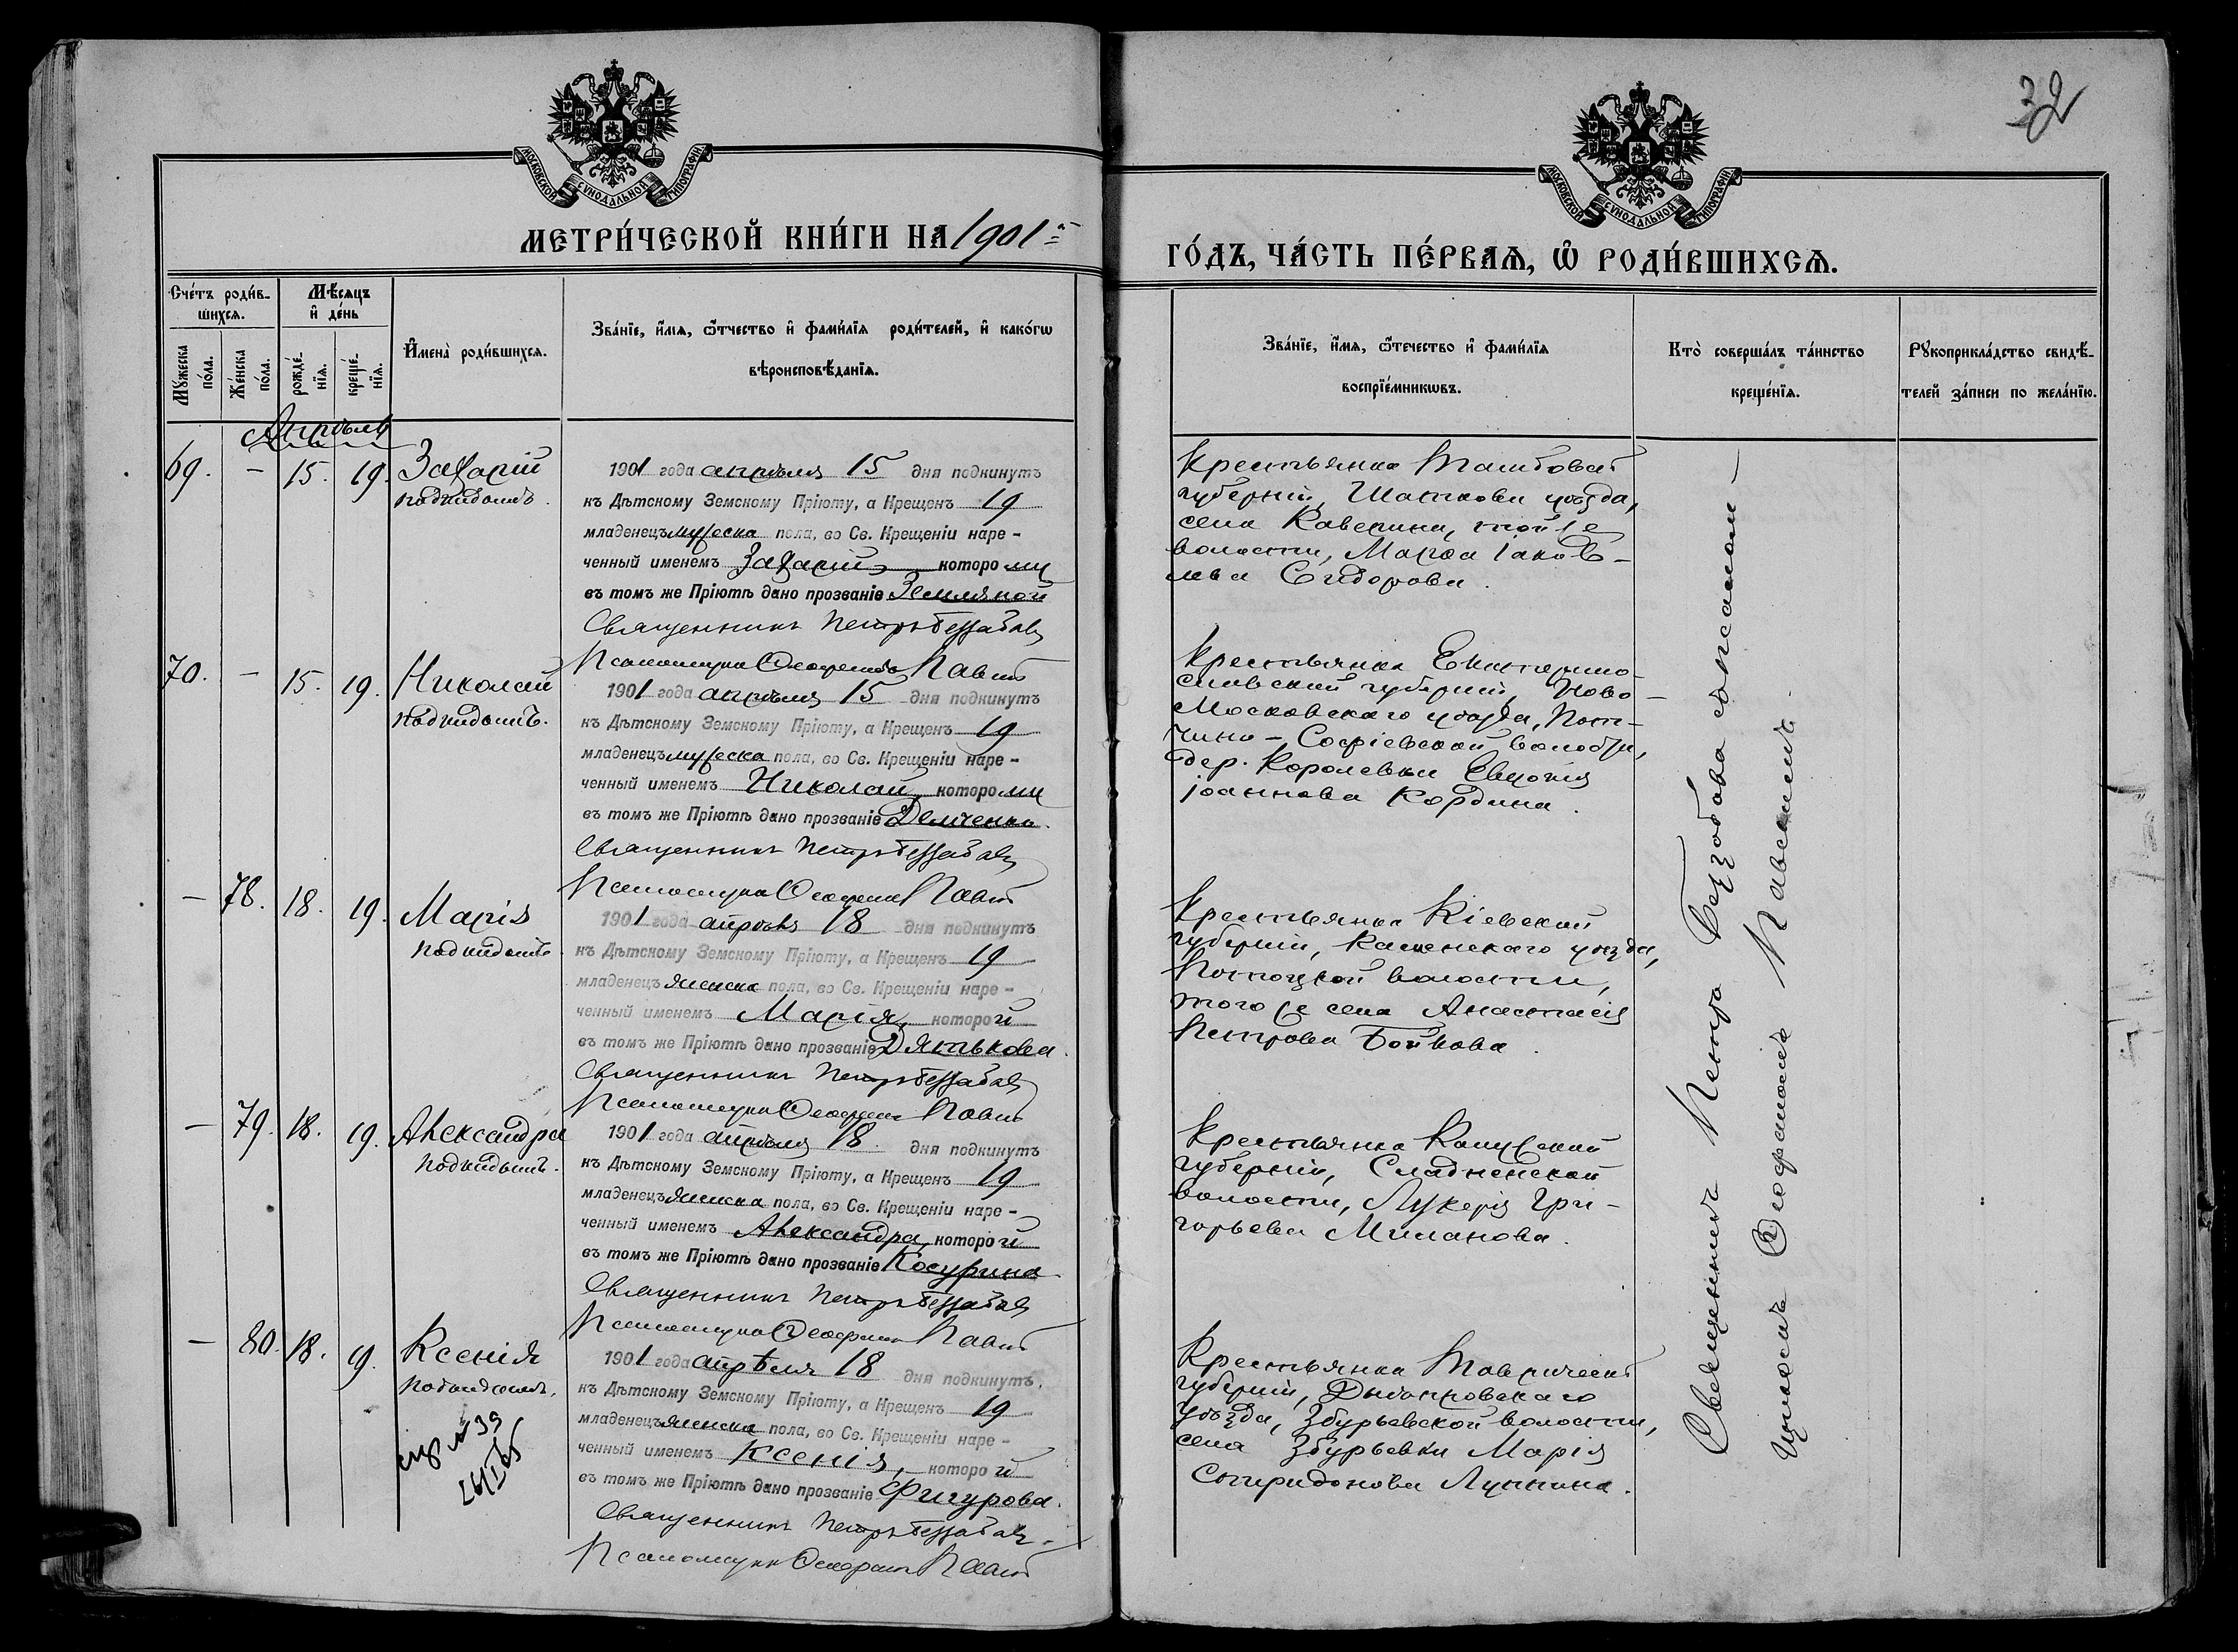 32
МОСКОВСКОЙ СѴНОДАЛЬНОЙ ТИПОГРАФІИ
МОСКОВСКОЙ СѴНОДАЛЬНОЙ ТИПОГРАФІИ
МЕТРИ́ЧЕСКОЙ КНИ́ГИ НА 1901й
ГО́ДЪ, ЧА́СТЬ ПЕ́РВАѦ, Ѽ РОДИ́ВШИХСѦ.
Сче́тъ роди́в-
шихсѧ.
Мѣ́сѧцъ
и҆ де́нь
Мꙋ́жеска
по́ла.
Же́нска
по́ла.
рожде́-
нїѧ.
креще́-
нїѧ.
И҆мена̀ роди́вшихсѧ.
Зва́нїе, и҆́мѧ, ѻ҆́тчество и҆ фами́лїѧ роди́телей, и҆ како́гѡ
вѣроисповѣ́данїѧ.
Зва́нїе, и҆́мѧ, ѻ҆́течество и҆ фами́лїѧ
воспрїе́мникѡвъ.
Кто̀ соверша́лъ та́инство
креще́нїѧ.
Рꙋкоприкла́дство свидѣ́-
телей за́писи по жела́нїю.
Апрѣль
69. - 15. 19. Захарій
подкидышъ.
1901 года апрѣля 15 дня подкинутъ
къ Дѣтскому Земскому Пріюту, а Крещенъ 19
младенецъ мужеска пола, во Св. Крещеніи наре-
ченный именемъ Захарій, которому
въ томъ же Пріютѣ дано прозваніе Земляной
Священникъ Петръ Беззабавъ
Псаломщикъ Ѳеофанъ
Крестьянка Тамбовской
губерніи, Шатскаго уѣзда,
села Каверина, той же
волости, Марѳа Іаков-
лева Сидорова.
70. - 15. 19. Николай
подкидышъ.
1901 года апрѣля 15 дня подкинутъ
къ Дѣтскому Земскому Пріюту, а Крещенъ 19
младенецъ мужеска пола, во Св. Крещеніи наре-
ченный именемъ Николай, которому
въ томъ же Пріютѣ дано прозваніе Демченко.
Священникъ Петръ
Псаломщикъ Ѳеофанъ
Крестьянка Екатерино-
славской губерніи, Ново-
Московскаго уѣзда,
Софіевской волости,
дер. Королевки
Іоаннова Кордина.
- 78. 18. 19. Марія
подкидышъ.
1901 года апрѣля 18 дня подкинутъ
къ Дѣтскому Земскому Пріюту, а Крещенъ 19
младенецъ женска пола, во Св. Крещеніи наре-
ченный именемъ Марія, которой
въ томъ же Пріютѣ дано прозваніе Дятькова.
Священникъ Петръ
Псаломщикъ Ѳеофанъ
Крестьянка Кіевской
губерніи, уѣзда,
волости,
того же села Анастасія
Петрова Бойкова.
- 79. 18. 19. Александра
подкидышъ.
1901 года апрѣля 18 дня подкинутъ
къ Дѣтскому Земскому Пріюту, а Крещенъ 19
младенецъ женска пола, во Св. Крещеніи наре-
ченный именемъ Александра, которой
въ томъ же Пріютѣ дано прозваніе
Священникъ Петръ
Псаломщикъ Ѳеофанъ
Крестьянка Калужской
губерніи,
волости, Лукерія Гри-
горьева Миланова.
- 80. 18. 19. Ксенія
подкидышъ.
1901 года апрѣля 18 дня подкинутъ
къ Дѣтскому Земскому Пріюту, а Крещенъ 19
младенецъ женска пола, во Св. Крещеніи наре-
ченный именемъ Ксенія, которой
въ томъ же Пріютѣ дано прозваніе Фигурова.
Священникъ Петръ
Псаломщикъ Ѳеофанъ
Крестьянка Таврической
губерніи, Днѣпровскаго
уѣзда, Збурьевской волости,
села Збурьевки Марія
Спиридонова Лупкина.
№ 39
Священникъ Петръ съ псаломщи-
Ѳеофаномъ